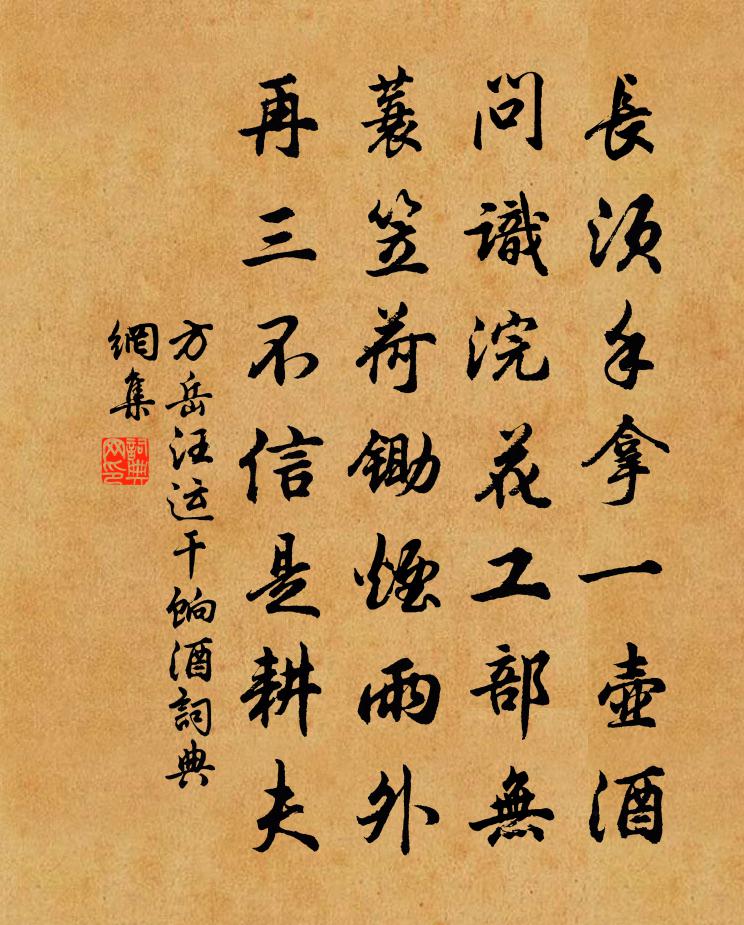 長须手拿一壺酒
問識浣花工部無
蓑笠荷鋤煙雨外
再三不信是耕夫
方岳汪运干餉酒詞典
網集
詞典
网印